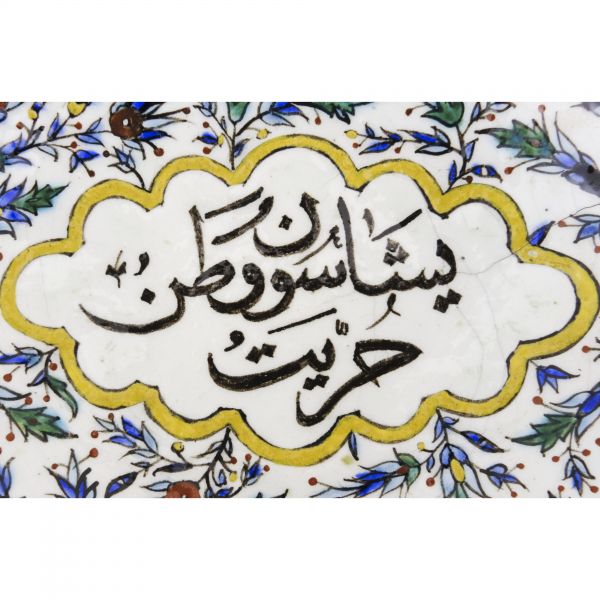 يشاسون وطن
حُرِّيَتُ